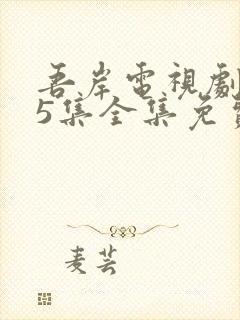 吾岸電視劇
5集全集免費
麦芸